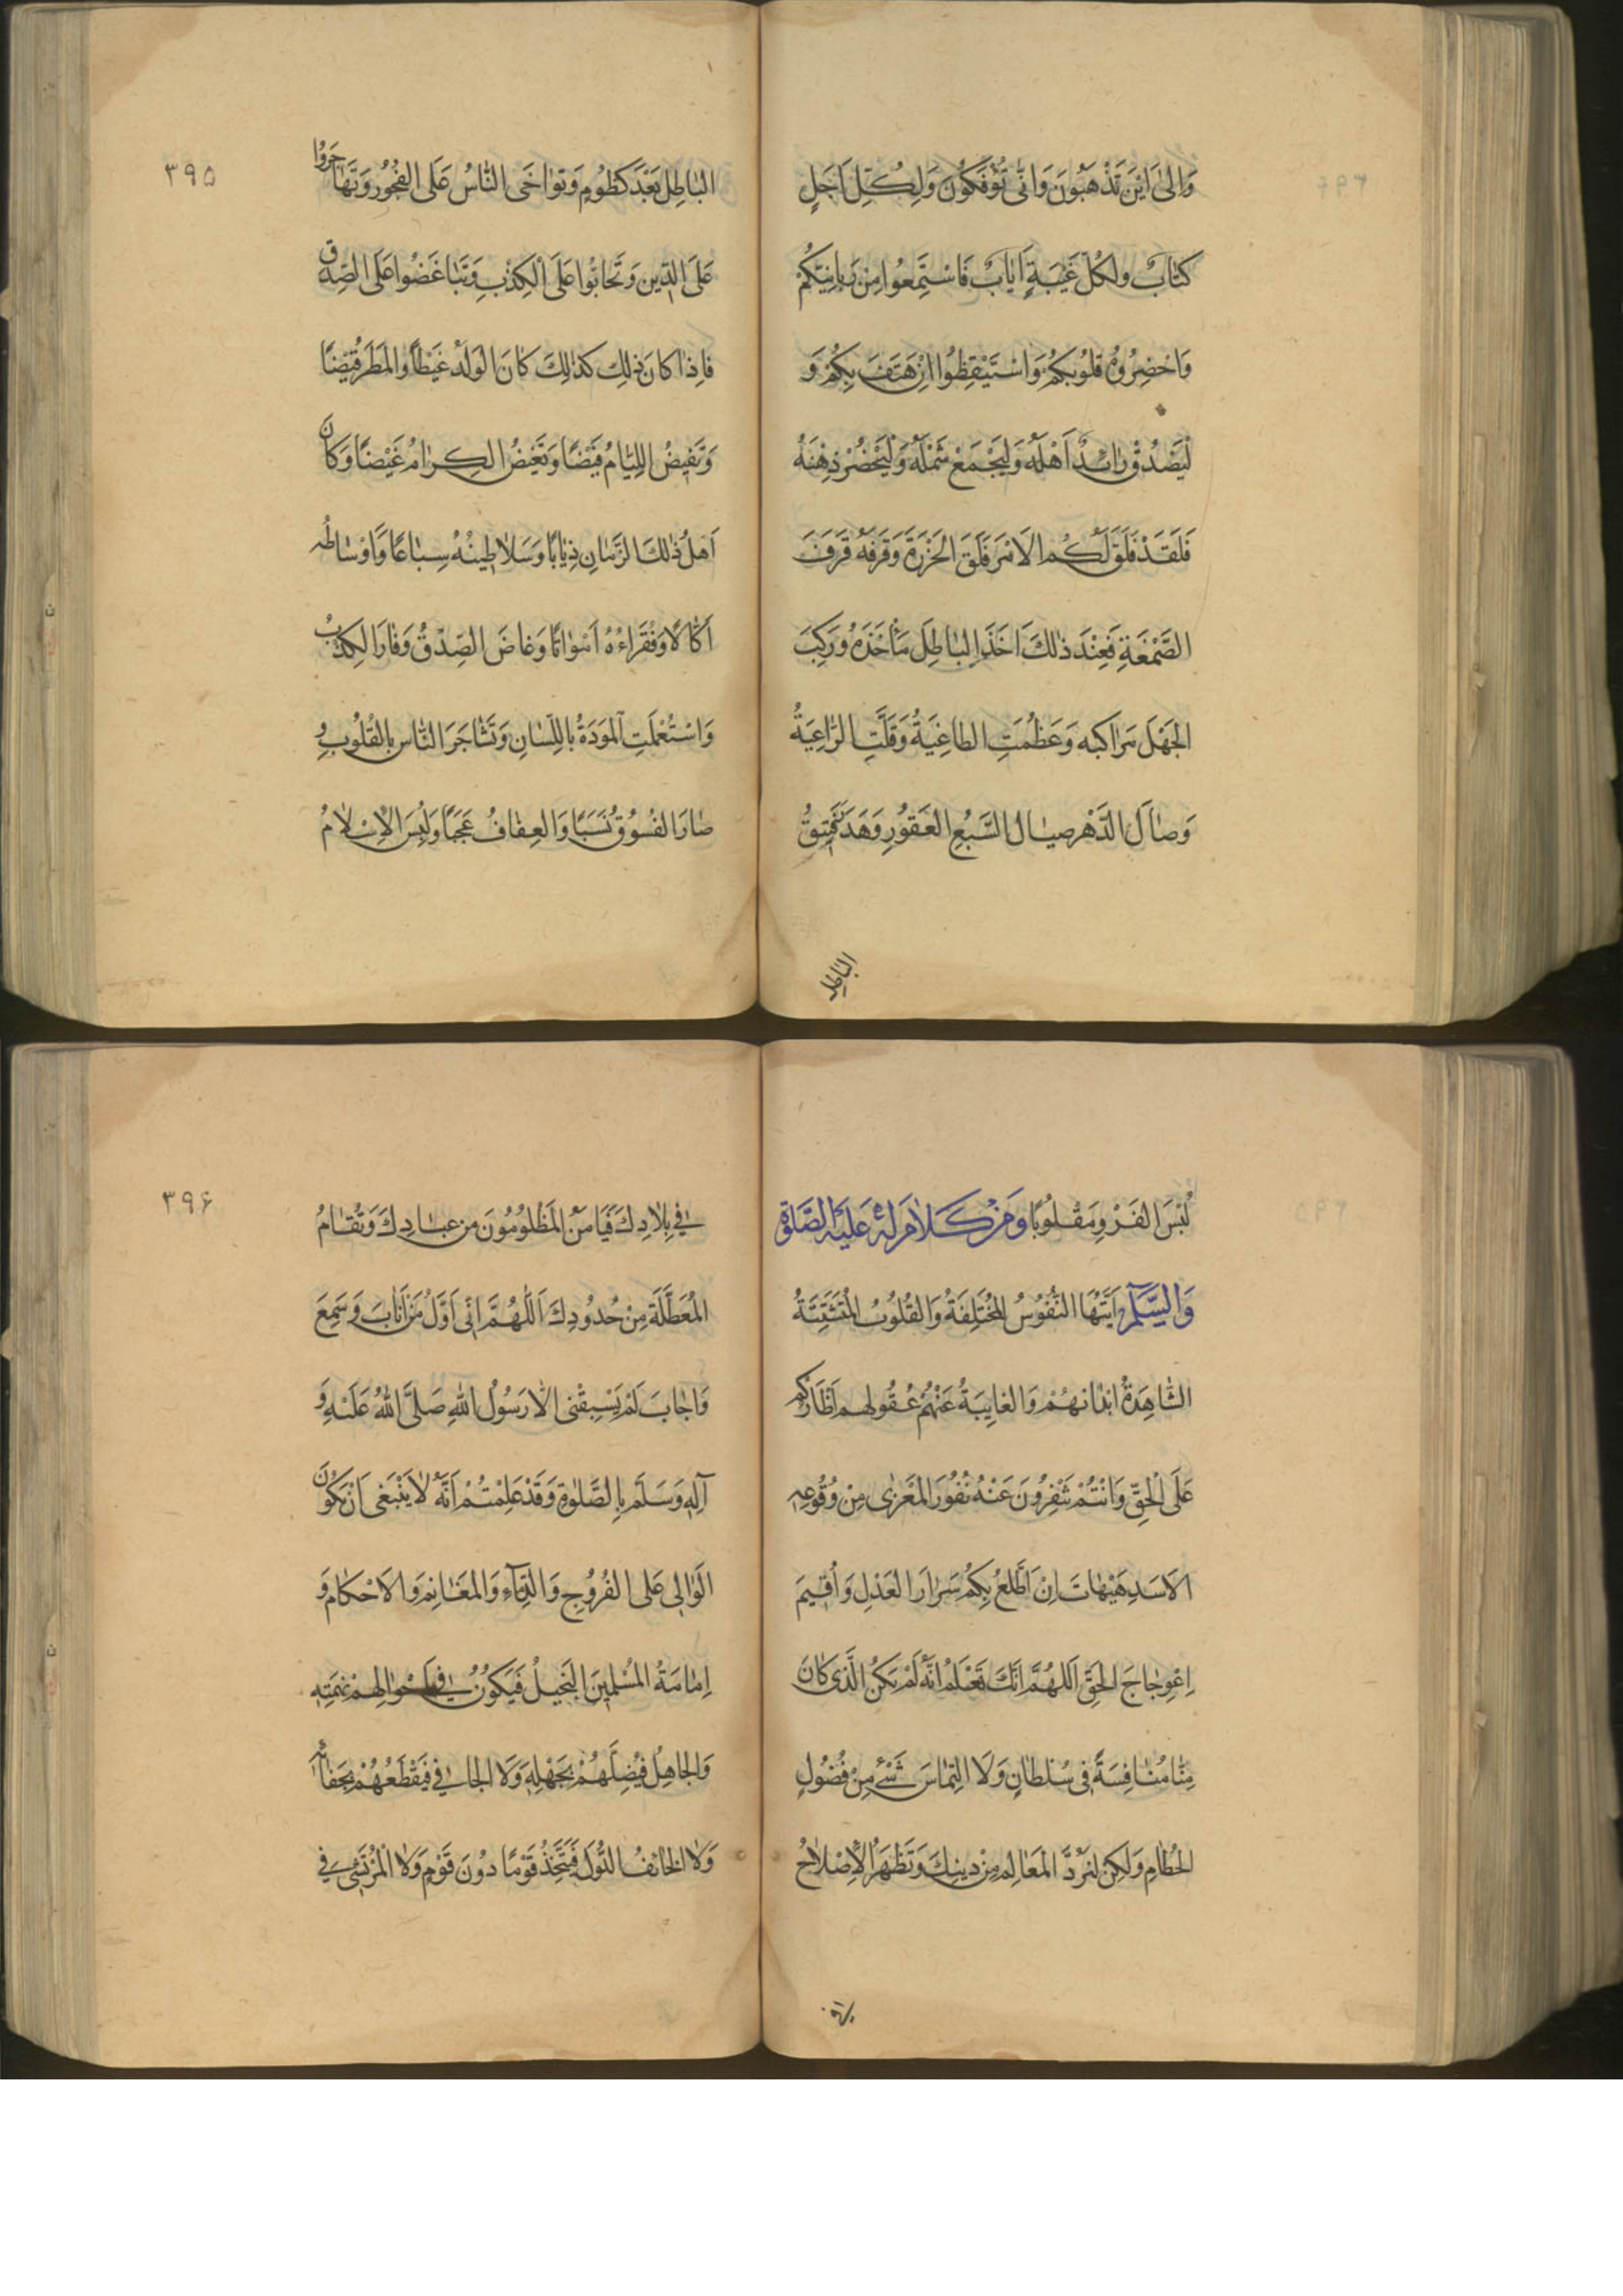 وَاِلىٰ اَيْنَ تَذْهَبُونَ وَاَنّٰى تُؤْفَكُونَ وَلِكُلِّ اَجَلٍ
كِتٰابٌ وَلِكُلِّ غَيْبَةٍ اِيٰابٌ فَاسْتَمِعُوا مِنْ رَبّانِيِّكُمْ
وَاَحْضِرُوهُ قُلُوبَكُمْ وَاسْتَيْقِظُوا اِنْ هَتَفَ بِكُمْ وَ
لْيَصْدُقْ رٰائِدٌ اَهْلَهُ وَلْيَجْمَعْ شَمْلَهُ وَلْيُحْضِرْ ذِهْنَهُ
فَلَقَدْ فَلَقَ لَكُمُ الاَمْرَ فَلَقَ الخَرَزَةَ وَقَرَفَهُ قَرَفَ
الصَّمْغَةِ فَعِنْدَ ذٰلِكَ اَخَذَ البٰاطِلُ مَأْخَذَهُ وَرَكِبَ
الجَهْلُ مَرٰاكِبَه وَعَظُمَتِ الطاغِيَةُ وَقَلَّتِ الرّٰاعِيَةُ
وَصٰالَ الدَّهْر صيٰالَ السَّبُعِ العَقُورِ وَهَدَرَ فَنِيقُ
البٰاطِلِ
٣٩٥
البٰاطِلِ بَعْدَ كُظُومٍ وَتَوٰاخَى النّٰاسُ عَلَى الفُجُورِ وَتَهٰاجَرُوا
عَلَى الدِّينِ وَتَحٰابُّوا عَلَى الْكِذْبِ وَتَبٰاغَضُوا عَلَى الصِّدْقِ
فَاِذٰا كانَ ذٰلِكَ كذٰلِكَ كانَ الوَلَدُ غَيْظًا وَالمَطَرُ قَيْضًا
وَتَفِيضُ اللِّئٰامُ فَيْضًا وَتَغِيضُ الكِرٰامُ غَيْضًا وَكٰانَ
اَهلُ ذٰلِكَ الزَّمٰانِ ذِئٰابًا وَسَلاٰطِينُهُ سِبٰاعًا وَاَوْسٰاطُه
اَكّٰالاً وَفُقَرٰاءُهُ اَمْوٰاتًا وَغاضَ الصِّدْقُ وَفٰارَ الكِذْبُ
وَاسْتُعْمِلَتِ المَوَدَّةُ بِاللِّسٰانِ وَتَشٰاجَرَ النّٰاس بِالقُلُوبِ وَ
صٰارَ الفُسُوقُ نَسَبًا وَالعِفٰافُ عَجَبًا وَلُبِسَ الاِسْلاٰمُ
لُبْسَ الفَرْوِ مَقْلُوبًا وَمِنْ كَلاٰمٍ لَهُ عَلَيْهِ الصَّلوٰة
وَالسَّلٰم اَيَّتُهَا النُّفُوسُ المُخْتَلِفَةُ وَالقُلُوبُ المُتَشَتِّتَةُ
الشّٰاهِدَةُ اَبْدٰانهُمْ وَالغايِبَةُ عَنْهُمْ عُقُولهم اَظْأَرُكُم
عَلَى الْحَقِّ وَاَنْتُمْ تَنْفِرُونَ عَنْهُ نُفُورَ المَعْزىٰ مِنْ وُقُوعِهِ
الاَسَدِ هَيْهٰاتَ اِنْ اَطَّلِعُ بِكُمْ سَرٰارَ العَدْلِ وَاُقِيمَ
اِعْوِجٰاجَ الحَقِّ اَللّٰهُمَّ اِنَّكَ تَعْلَمُ اَنَّهُ لَمْ يَكُنِ الَّذى كٰانَ
مِنّٰا مُنٰافَسَةً فى سُلطٰانٍ وَلَا التِمٰاسَ شَىْءٍ مِنْ فُضُولِ
الحُطٰامِ وَلكِن لِنَرُدَّ المَعٰالِمَ مِنْ دِينِكَ وَتَظْهَرُ الاِصْلاٰحُ
فى
٣٩۶
فى بِلاٰدِكَ فَيَأمَنَ المَظْلُومُونَ مِن عِبٰادِكَ وَتُقٰامُ
المُعَطَّلَة مِنْ حُدُودِكَ اَللّٰهُمَّ اِنّى اَوَّلُ مَنْ اَنٰابَ وَسَمِعَ
وَاَجٰابَ لَمْ يَسْبِقْنى اِلاّٰ رَسُولُ اللّٰهِ صَلَّى اللّٰهُ عَلَيْهِ وَ
آلِهِ وَسَلَّم بِالصَّلٰوةِ وَقَدْ عَلِمْتُمْ اَنَّهُ لاٰ يَنْبَغى اَنْ يَكُونَ
الوٰالِى عَلَى الفُرُوجِ وَالدِّمٰآءِ وَالمَغٰانِمِ وَالاَحْكٰامِ وَ
اِمٰامَةِ المُسْلِمِينَ البَخِيلُ فَيَكُونُ فى اَمْوٰالِهِمْ نَهْمَتِهِ
وَلَا الجٰاهِلُ فَيُضِلَّهُمْ بِجَهْلِهِ وَلَا الجٰافى فَيَقْطَعُهُمْ بِجَفٰائِهِ
وَلاٰ الخٰائِفُ الدُّوَلَ فَيَتَّخِذُ قَوْمًا دُونَ قَوْمٍ وَلاٰ المُرْتَشى فى